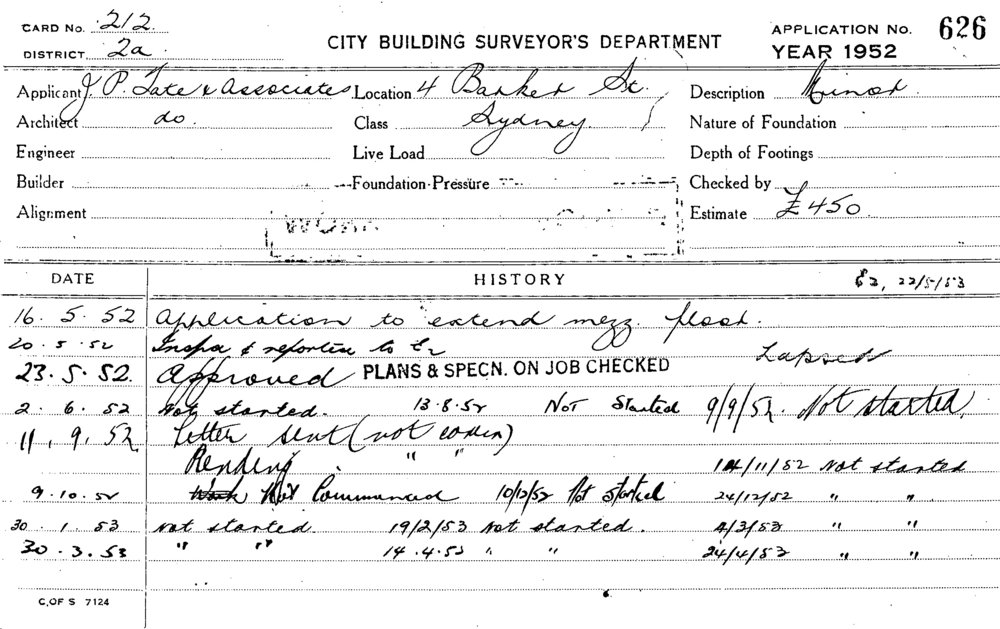 CARD No. 212. CITY BUILDING SURVEYOR'S DEPARTMENT APPLICATION No. 626
DISTRICT 2a YEAR 1952
Applicant J. P. Tate & Associates Location 4 Barker St. Description Minor.
Architect do. Class Sydney. Nature of Foundation
Engineer Live Load Depth of Footings
Builder Foundation Pressure Checked by
Alignment Estimate £450.
DATE HISTORY E2, 22/5/53
16. 5. 52 Application to extend mezz. floor.
20. 5. 52 & to E2 Lapsed
23. 5. 52. Approved PLANS & SPECN. ON JOB CHECKED
2. 6. 52 Not started. 13.8.52 Not Started 9/9/52. Not started.
11. 9. 52 Letter sent (not
Pending " " 14/11/52 Not started
9.10.52 Work Not Commenced 10/12/52 Not Started 24/12/52 " "
30. 1. 53 Not started. 19/2/53 Not started. 4/3/53 " "
30. 3. 53 " " 14.4.53 " " 24/4/53 " "
C. OF S 7124